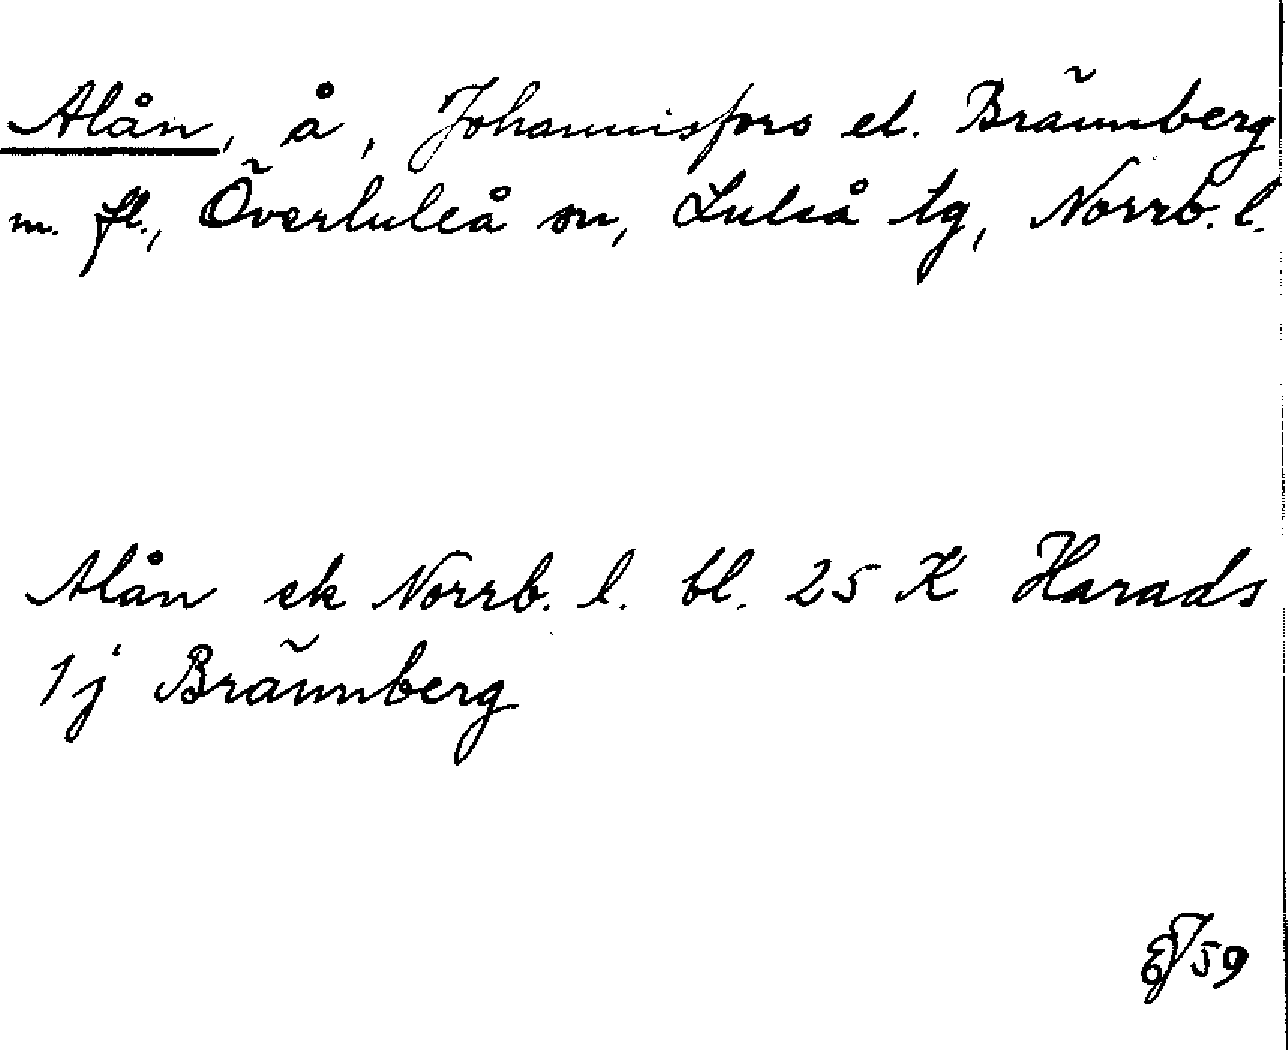 Alån, å, Johannisfors el. Brännberg
m. fl., Överluleå sn, Luleå tg, Norrb. l.
Alån ek Norrb. l. bl. 25 K Harads
1 j Brännberg
59